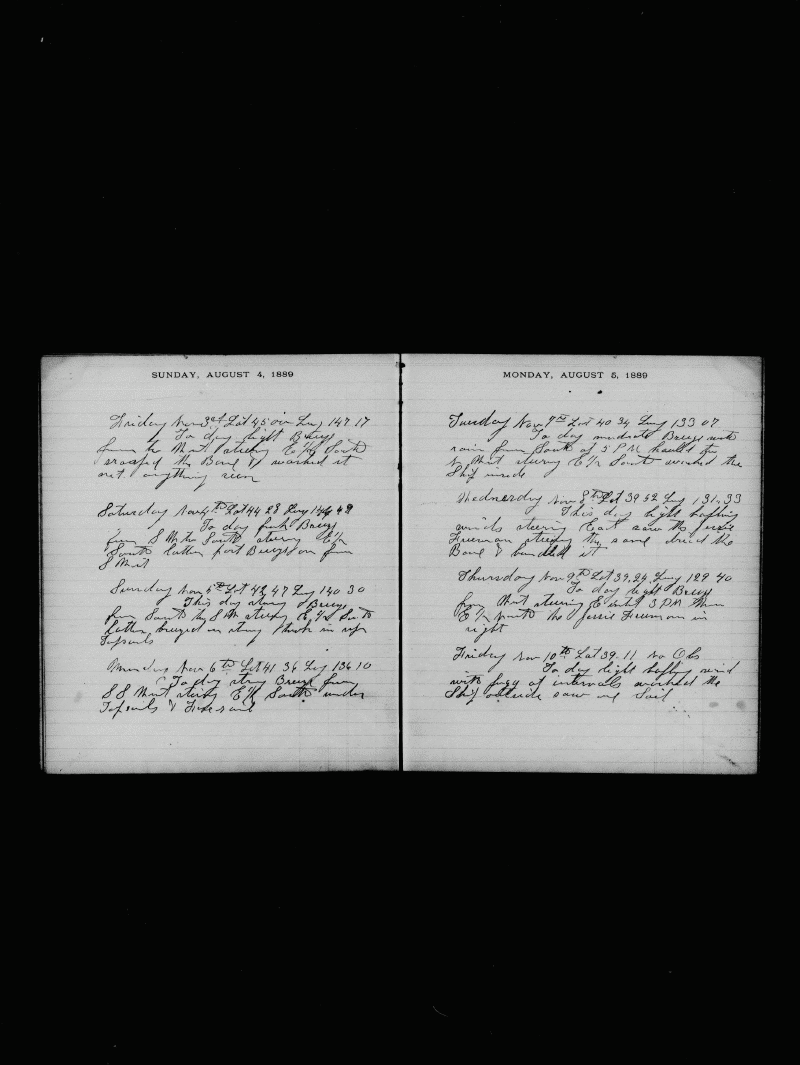 SUNDAY, AUGUST 4, 1889
Friday Nov 3rd Lat 45 00 Long 147 17
To day light Breeze
from the West steering E 1/2 South
scraped the Bone & washed it
not anything seen
Saturday Nov 4th Lat 44 28 Long 144 48
To day fresh Breeze
from S W to South steering E 1/2
South latter part Breezed on from
S West
Sunday Nov 5th Lat 42 47 Long 140 30
This day strong Breeze
from South by S W steering E 1/2 South
latter breezed on strong took in
Topsails
Monday Nov 6th Lat 41 36 Long 136 10
To day strong Breeze from
S S West steering E 1/2 South under
Topsails & Foresail
MONDAY, AUGUST 5, 1889
Tuesday Nov 7th Lat 40 34 Long 133 07
To day moderate Breeze with
rain from South at 5 P M hauled
to West steering E 1/2 South washed the
Ship inside
Wednesday Nov 8th Lat 39.52 Long 131.33
This day light baffling
winds steering East saw the Jessie
Freeman steering the same dried the
Bone & bundled it
Thursday Nov 9th Lat 39.24 Long 129 40
To day light Breeze
from West steering E until 3 P.M. then
E 1/2 south the Jessie Freeman in
sight
Friday Nov 10th Lat 39.11 No Obs
To day light baffling wind
with fogy at intervals washed the
Ship outside saw one Sail